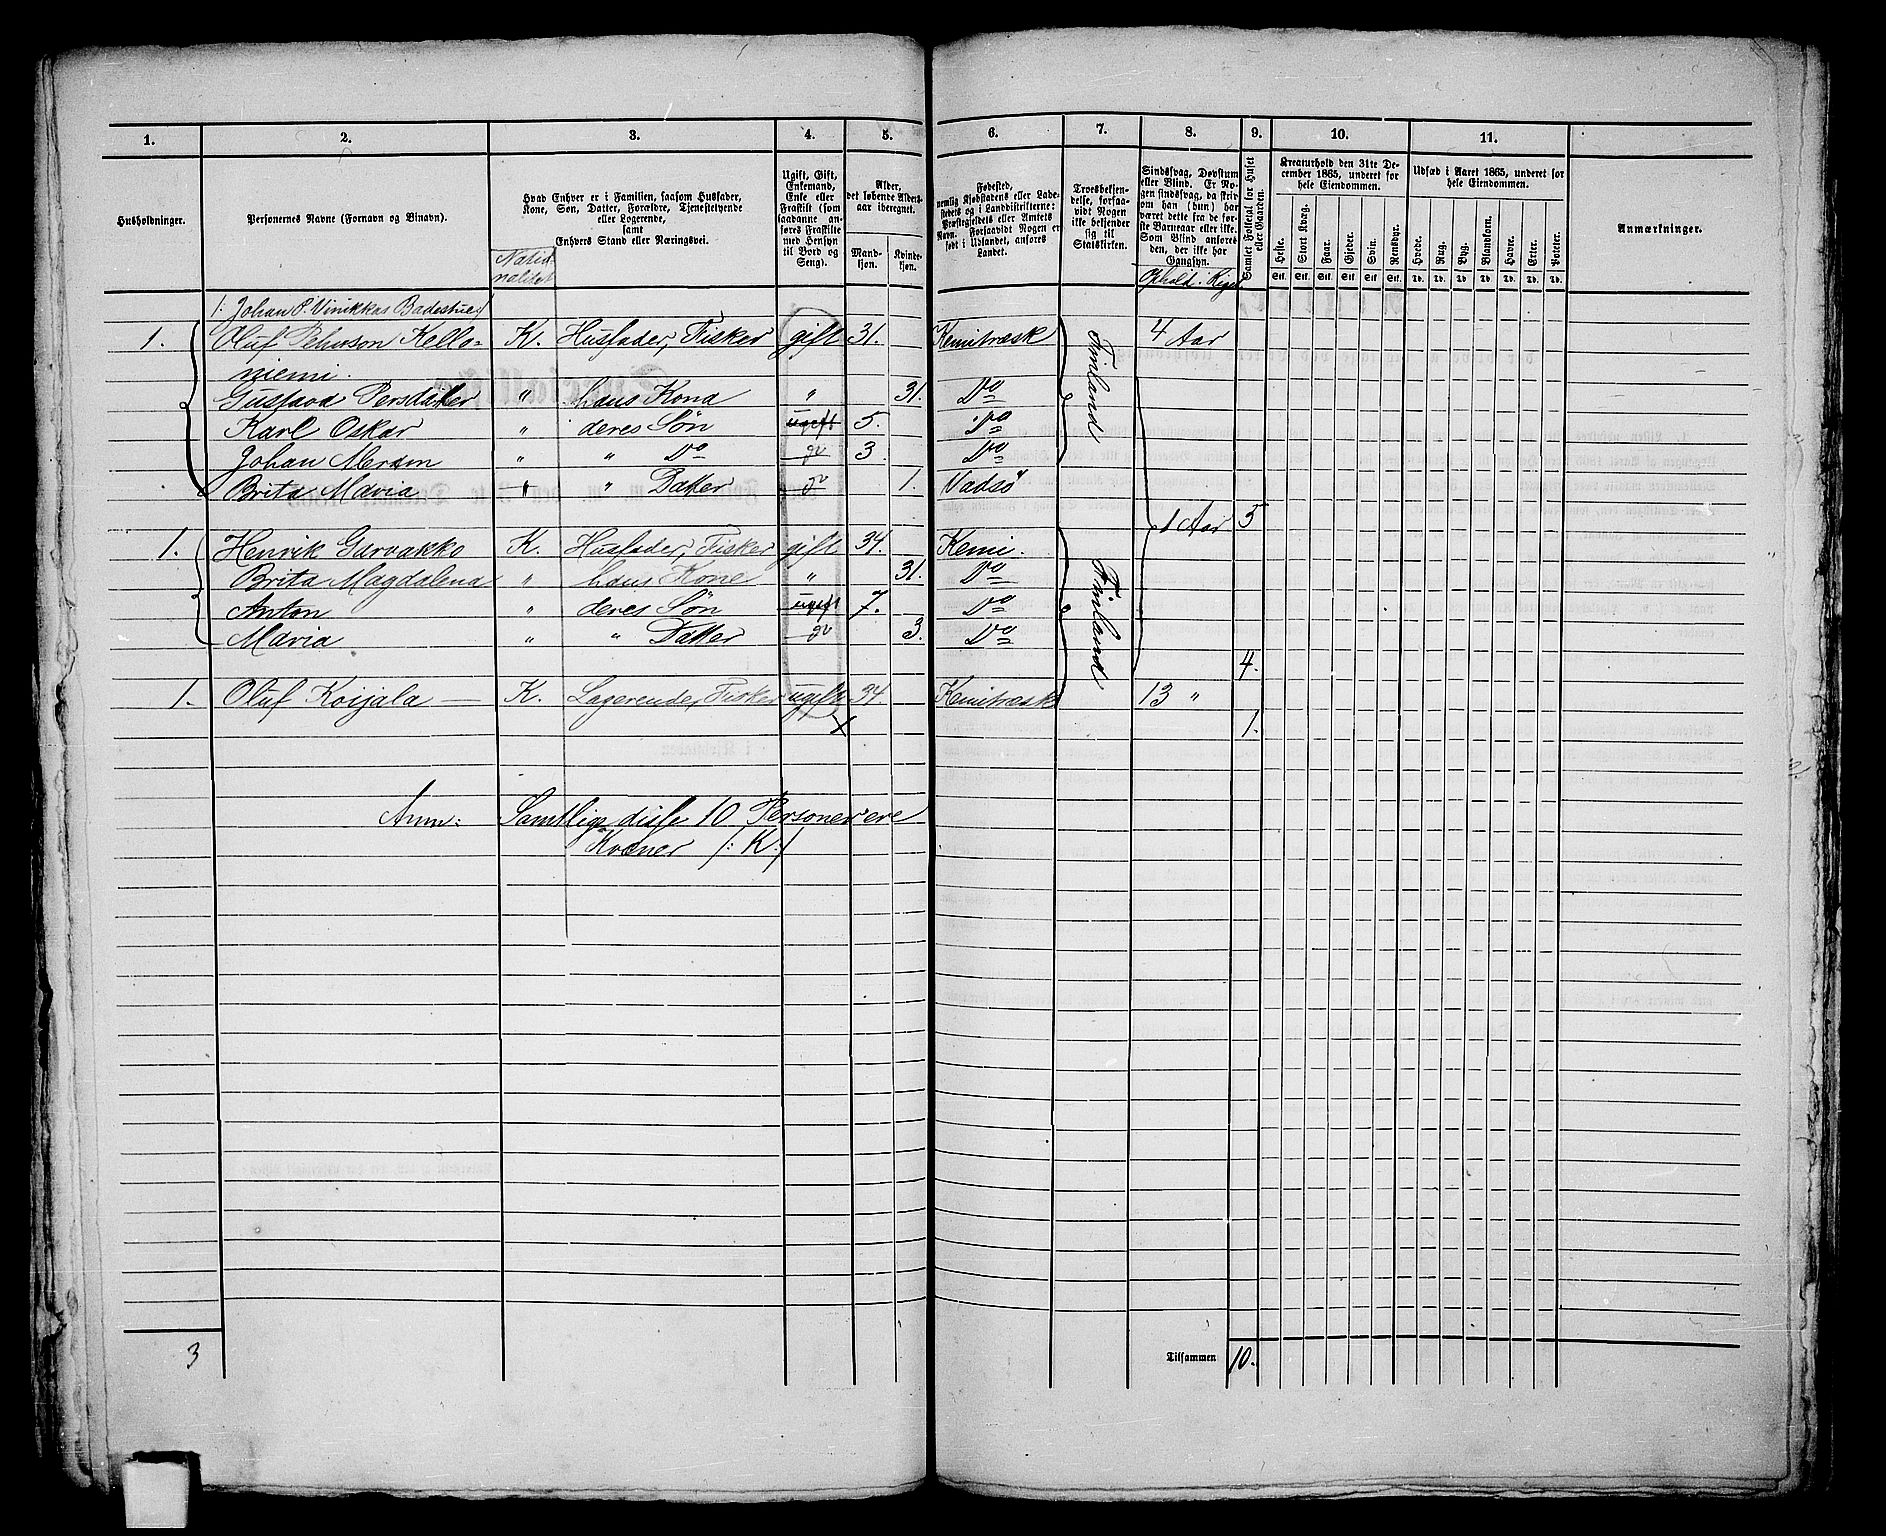 1. 2. 3. 4. 5. 6. 7. 8. 9. 10. 11.
Husholdninger.
Personernes Navne (Fornavn og Binavn).
Hvad Enhver er i Familien, saasom Husfader,
Kone, Søn, Datter, Forældre, Tjenestetyende
eller Logerende,
samt
Enhvers Stand eller Næringsvei.
Natio-
nalitet
Ugift, Gift,
Enkemand,
Enke eller
Fraskilt (som
saadanne an-
føres Fraskilte
med Hensyn
til Bord og
Seng).
Alder,
det løbende Alders-
aar iberegnet.
Mand-
kjøn.
Kvinde-
kjøn.
Fødested,
nemlig Kjøbstadens eller Lade-
stedets og i Landdistrikterne:
Præstegjeldets eller Amtets
Navn. Forsaavidt Nogen er
født i Udlandet, anføres
Landet.
Troesbekjen-
delse, forsaa-
vidt Nogen
ikke bekjender
sig til
Statskirken.
Sindssvag, Døvstum
eller Blind. Er No-
gen sindssvag, da skriv
om han (hun) har
været dette fra de før-
ste Barneaar eller ikke.
Som Blind anføres
den, der ikke har
Gangsyn.
Ophold i Riget
Samlet Folketal for Huset
eller Gaarden.
Kreaturhold den 31te De-
cember 1865, underet for
hele Eiendommen.
Heste. Stort Kvæg. Faar. Gjeder. Svin. Rensdyr.
Stk. Stk. Stk. Stk. Stk. Stk.
Udsæd i Aaret 1865, underet for
hele Eiendommen.
Hvede. Rug. Byg. Blandkorn. Havre. Erter. Poteter.
Td. Td. Td. Td. Td. Td. Td.
Anmærkninger.
1. Johan P. Vinikkas Badestue
1. Oluf Pehrson Kello- K. Husfader, Fisker gift 31. Kemitræsk 4 Aar
niemi.
Gustava Persdatter " hans Kone " 31. Do
Karl Oskar " deres Søn ugift 5. Do
Johan " " Do do 3. Do
Brita Maria " " Datter do 1. Vadsø
Finland
1 Aar 5
1. Henrik Garvakko K. Husfader, Fisker gift 34. Kemi.
Brita Magdalena " hans Kone " 31. Do
Anton " deres Søn ugift 7. Do
Maria " " Datter do 3. Do
Finland
4.
1. Oluf Koijala — K. Logerende, Fisker ugift 34. Kemitræsk 13 "
1.
Anm: Samtlige disse 10 Personer ere
Kvæner /: K :/
3
Tilsammen 10.